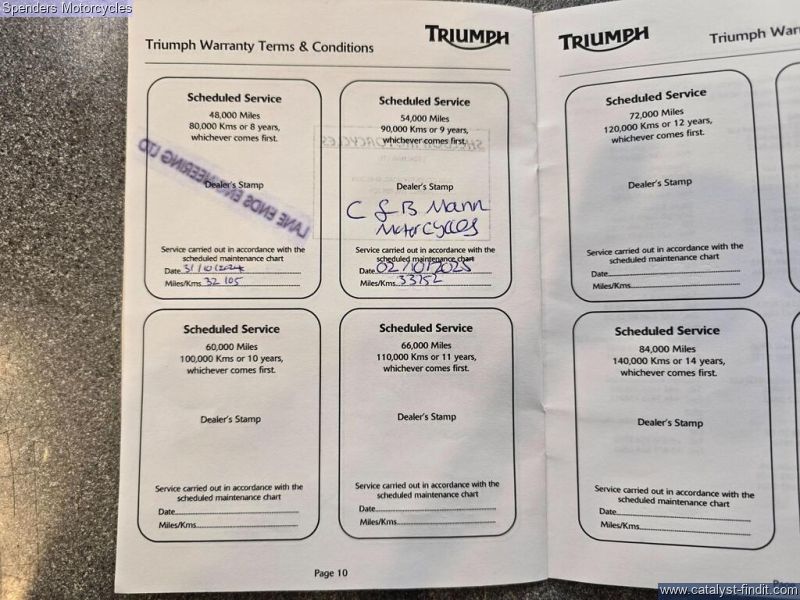 Spenders Motorcycles
Triumph Warranty Terms & Conditions
TRIUMPH
Scheduled Service
48,000 Miles
80,000 Kms or 8 years,
whichever comes first.
LANE ENDS ENGINEERING LTD
Dealer's Stamp
Service carried out in accordance with the
scheduled maintenance chart
Date 31/10/2024
Miles/Kms 32 105
Scheduled Service
54,000 Miles
90,000 Kms or 9 years,
whichever comes first.
Dealer's Stamp
C & B Mann
Motorcycles
Service carried out in accordance with the
scheduled maintenance chart
Date 02/10/2025
Miles/Kms 33752
Scheduled Service
60,000 Miles
100,000 Kms or 10 years,
whichever comes first.
Dealer's Stamp
Service carried out in accordance with the
scheduled maintenance chart
Date
Miles/Kms
Scheduled Service
66,000 Miles
110,000 Kms or 11 years,
whichever comes first.
Dealer's Stamp
Service carried out in accordance with the
scheduled maintenance chart
Date
Miles/Kms
Page 10
TRIUMPH
Triumph War
Scheduled Service
72,000 Miles
120,000 Kms or 12 years,
whichever comes first.
Dealer's Stamp
Service carried out in accordance with the
scheduled maintenance chart
Date
Miles/Kms
Scheduled Service
84,000 Miles
140,000 Kms or 14 years,
whichever comes first.
Dealer's Stamp
Service carried out in accordance with the
scheduled maintenance chart
Date
Miles/Kms
www.catalyst-findit.com